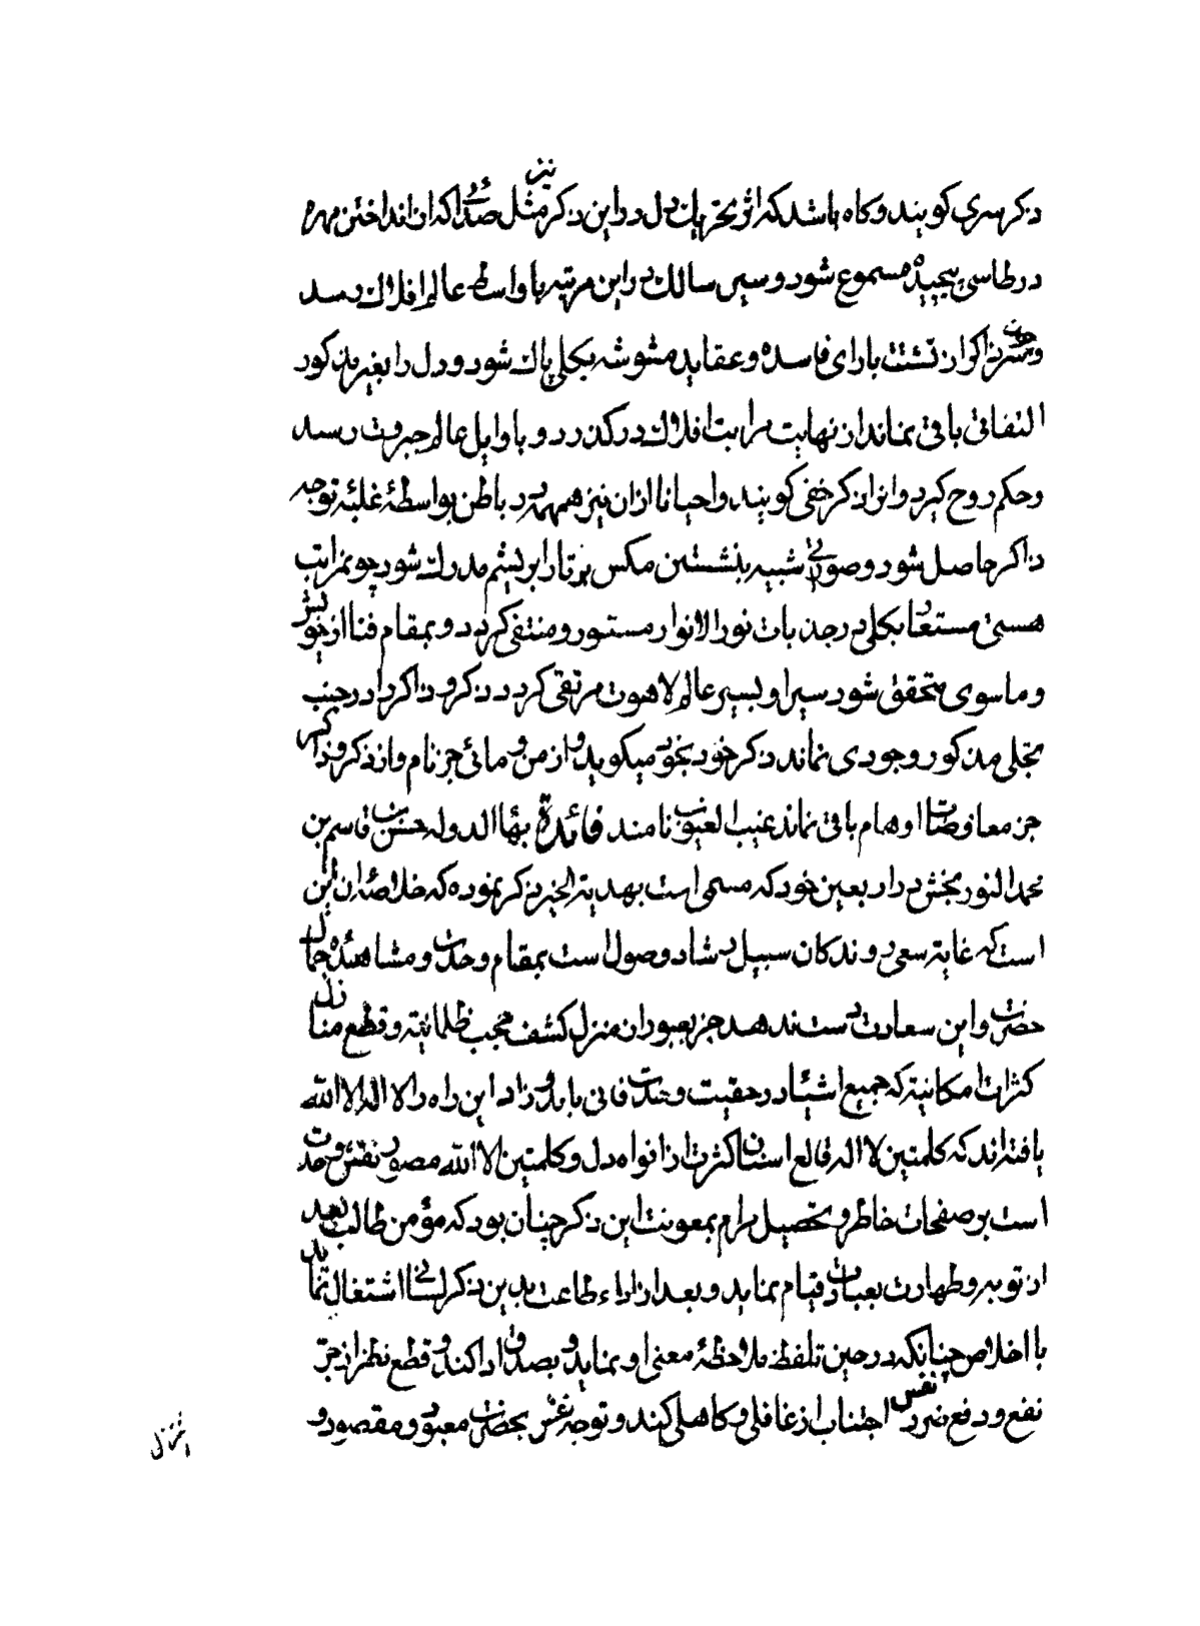 ذکر سری کویند و کاه باشد که اثر تحریک دل در این ذکر نیز مثل صدائی که از انداختن مهره
در طاسی پیچیده مسموع شود و سیر سالک در این مرتبه باواسط عالم افلاک رسد
و چون سر ذاکر از تشتت بارای فاسده و عقاید مشوشه بکلی پاک شود و دل را بغیر مذکور
التفاتی باقی نماند از نهایت مراتب افلاک درکذرد و باوایل عالم جبروت رسد
و حکم روح کیرد و انرا ذکر خفی کویند و احیانا ازان نیز همهمه در باطن بواسطهٔ غلبهٔ توجه
ذاکر حاصل شود و صوتی شبیه بنشستن مکس بر تار ابریشم مدرک شود چون مراتب
هستی مستعار بکلی در جذبات نور الانوار مستور و منتفی کردد و بمقام فنا از خویش
و ماسوی متحقق شود سیر او بسیر عالم لاهوت مرتقی کردد ذکر و ذاکر را در جنب
تجلی مذکور وجودی نماند ذکر خود بخود میکوید و از من و مائی جز نام و از ذکر و ذاکر
جز معاوضات اوهام باقی نماند غیب الغیوب نامند فائدة بهاء الدوله حسن بن قاسم بن
محمد النوربخش در اربعین خود که مسمی است بهدیة الخیر ذکر نموده که خلاصه‌اش این
است که غایة سعی روندکان سبیل رشاد وصول است بمقام وحدت و مشاهده جمال
حضرت و این سعادت دست ندهد جز بعبور از منزل کشف حجب ظلمانیه و قطع منازل
کثرات امکانیه که جمیع اشیاء در حقیت وحدت فانی یابد و زاد این راه را لا اله الا الله
یافته‌اند که کلمتین لا اله قالع اسنان کثرت از افواه دل و کلمتین الا الله مصور نقش وحدت
است بر صفحات خاطر و تحصیل مرام بمعونت این ذکر چنان بود که مؤمن طالب بعد
از توبه و طهارت بعبادت قیام نماید و بعد از اداء طاعت بدین ذکر لسانی اشتغال نماید
با اخلاص چنانکه در حین تلفظ ملاحظهٔ معنی او نماید و بصدق ادا کند و قطع نظر از جر
نفع و دفع ضرر نفس اجتناب از غافلی و کاهلی کند و توجه بحضرت معبود و مقصود و